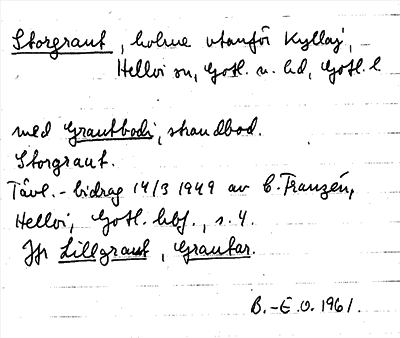 Storgraut, holme utanför Kyllaj,
Hellvi sn, Gotl. n. hd, Gotl. l
med Grautbodi, strandbod.
Storgraut.
Tävl.-bidrag 14/3 1949 av C. Franzén,
Hellvi, Gotl. hbf., s. 4.
Jfr Lillgraut, Grautar.
B.-E.O. 1961.